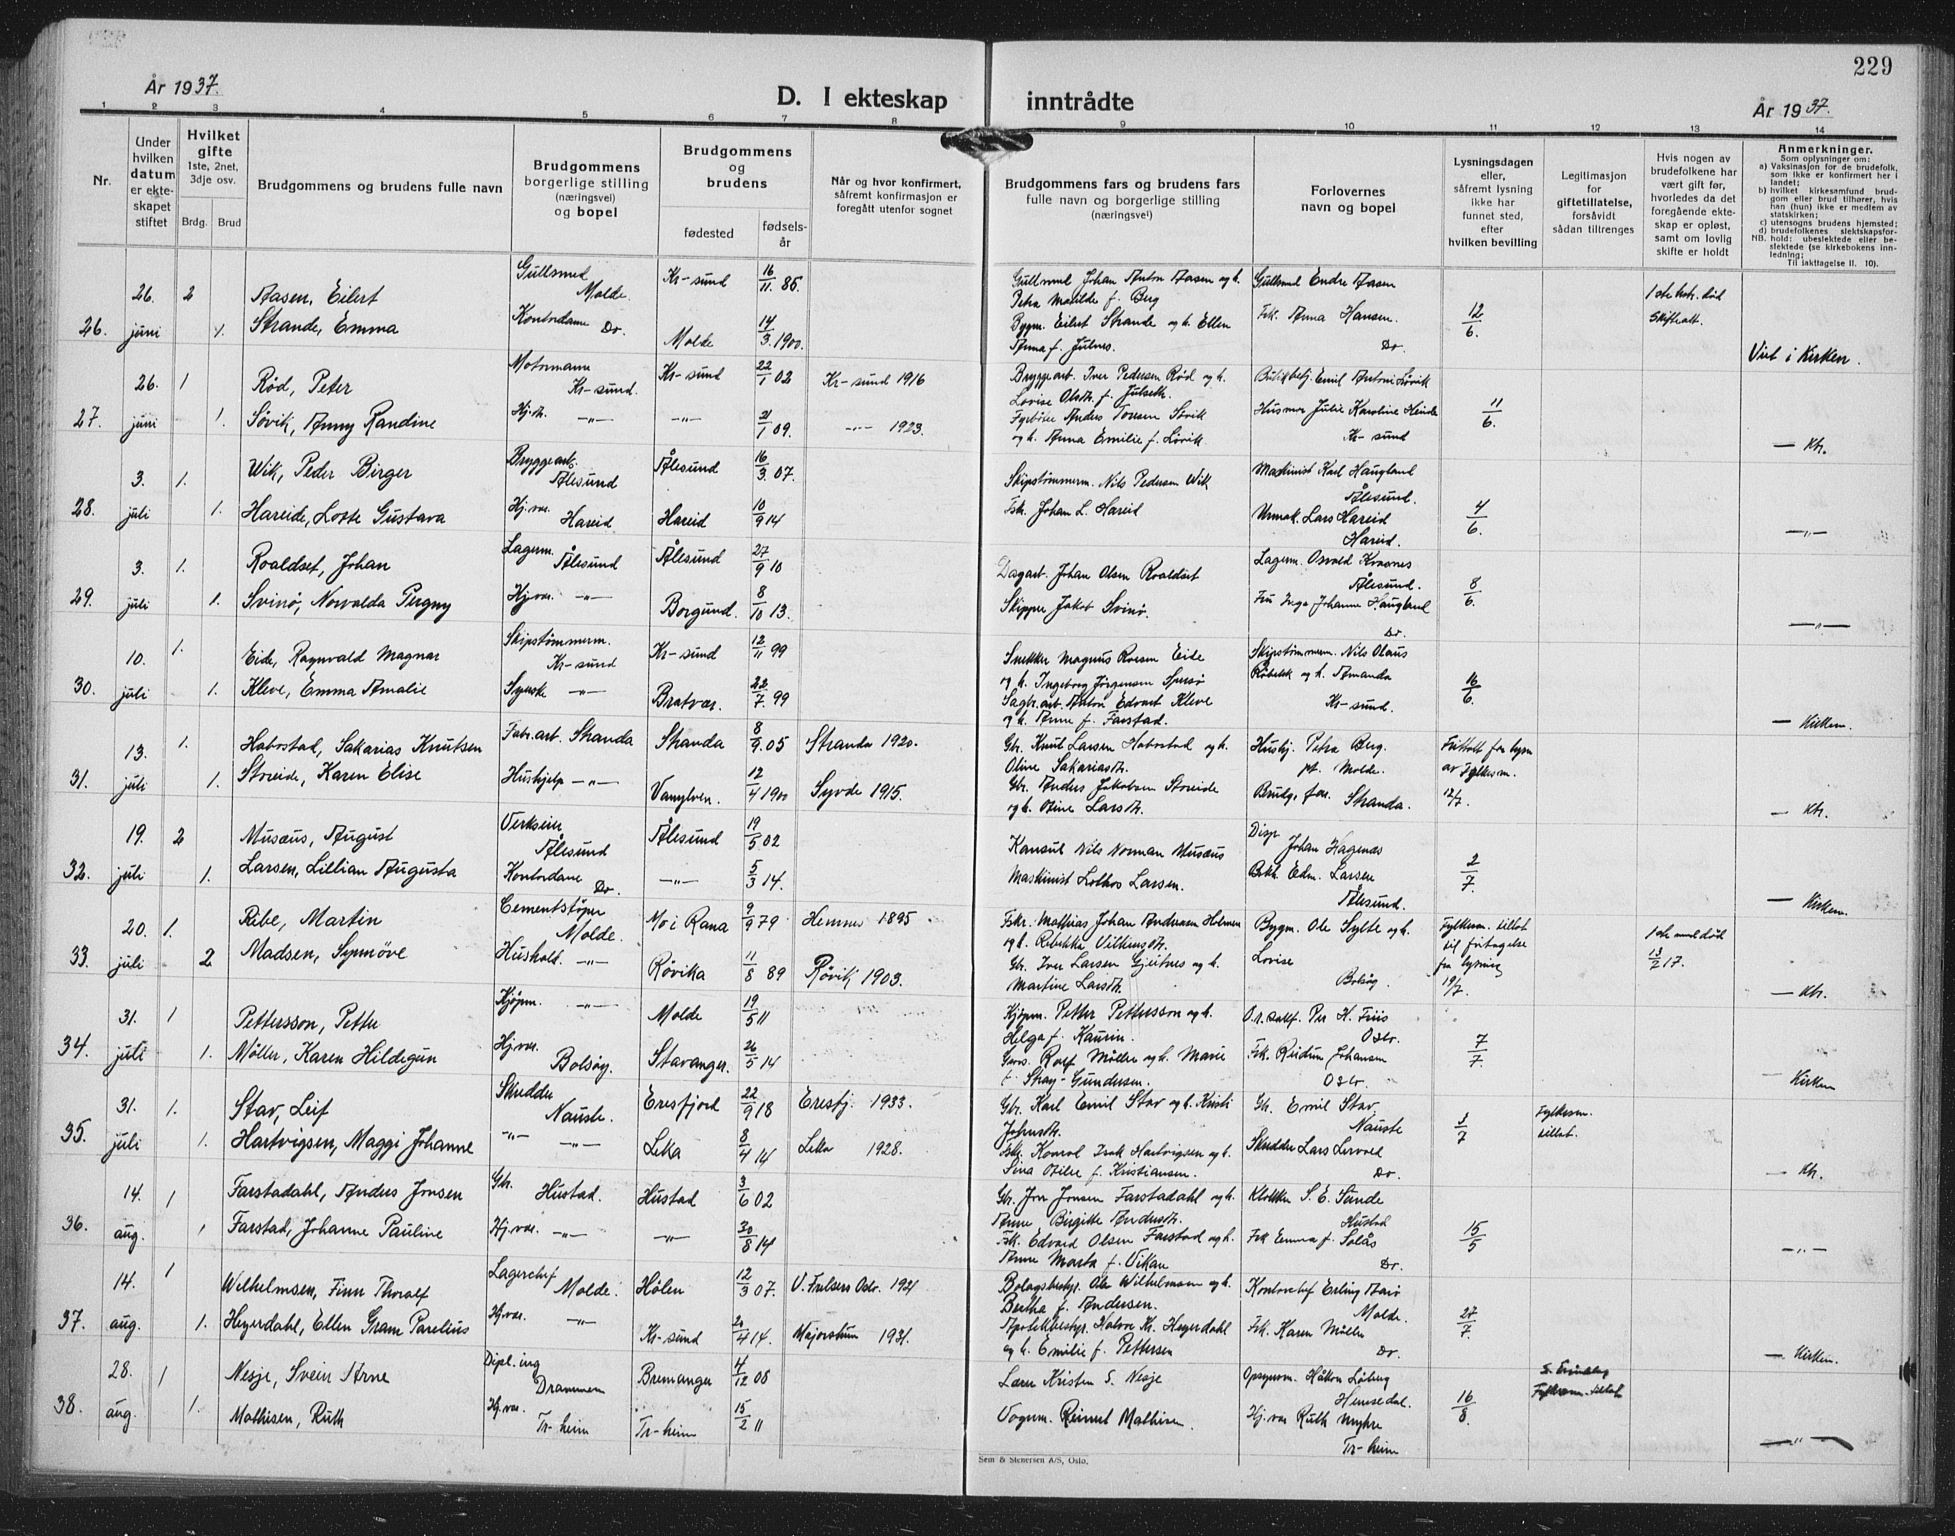 229
År 1937.
D. I ekteskap inntrådte
År 1937.
1 2 3 4 5 6 7 8 9 10 11 12 13 14
Nr.
Under hvilken datum er ekteskapet stiftet
Hvilket gifte 1ste, 2net, 3dje osv.
Brdg. Brud
Brudgommens og brudens fulle navn
Brudgommens borgerlige stilling (næringsvei) og bopel
Brudgommens og brudens
fødested
fødselsår
Når og hvor konfirmert, såfremt konfirmasjon er foregått utenfor sognet
Brudgommens fars og brudens fars fulle navn og borgerlige stilling (næringsvei)
Forlovernes navn og bopel
Lysningsdagen eller, såfremt lysning ikke har funnet sted, efter hvilken bevilling
Legitimasjon for giftetillatelse, forsåvidt sådan tiltrenges
Hvis nogen av brudefolkene har vært gift før, hvorledes da det foregående ekteskap er opløst, samt om lovlig skifte er holdt
Anmerkninger.
Som oplysninger om:
a) Vaksinasjon for de brudefolk, som ikke er konfirmert her i landet;
b) hvilket kirkesamfund brudgom eller brud tilhører, hvis han (hun) ikke er medlem av statskirken;
c) utensogns brudens hjemsted;
d) brudefolkenes slektskapsforhold: ubeslektede eller beslektede (se kirkebokens innledning;
NB. Til iakttagelse II. 10).
26. 2 Aasen, Eilert Gullsmed Molde. Kr-sund 16/11 85. Gullsmed Johan Anton Aasen og h. Petra Matilde f. Berg Gullsmed Endre Aasen 1ste hstr. død
26. juni 1. Strande, Emma Kontordame Do. Molde 14/3 1900. Bygm. Eilert Strande og h. Ellen Anna f. Julnes. Frk. Anna Hansen. Do. 12/6. Skifteatt. Viet i Kirken.
26. 1 Rød, Peter Motormann Kr-sund. Kr-sund 22/1 02 Kr-sund 1916 Bryggearb. Iver Pedersen Rød og h. Lovise Olsdtr. f. Julseth. Butikkbetj. Emil Antoni Løvik
27. juni 1. Søvik, Anny Randine Hj.d. -"- -"- 21/1 09. -"- 1923. Fyrbøter Anders Tomesen Søvik og h. Anna Emilie f. Løvik. Husmor Julie Karoline Heinde Kr-sund 11/6. - Ktr.
3. 1. Wik, Peder Birger Bryggearb. Ålesund Ålesund 16/3 07. Skipstømmerm. Nils Pedersen Wik Maskinist Karl Haugland Ålesund.
28. juli 1. Hareide, Lotte Gustava Hj.vær. Hareid Hareid 10/9 14 Fskr. Johan L. Hareid Urmak. Lars Hareid Hareid. 4/6. -"-
3. 1. Roaldset, Johan Lagerm. Ålesund Ålesund 27/9 10 Dagarb. Johan Olsen Roaldset Lagerm. Osvald Kvasnes Ålesund.
29. juli 1. Svinø, Norvalda Pergny Hj.vær. -"- Borgund. 8/10 13. Skipper Jakob Svinø Fru Inga Johanne Haugland Do. 8/6. -"-
10. 1. Eide, Ragnvald Magnar Skipstømmerm. Kr-sund Kr-sund 12/11 99 Snekker Magnus Roesen Eide og h. Ingeborg Jørgensen Spersø Skipstømmerm. Nils Olaus Røbekk og h. Amanda
30. juli 1. Kleve, Emma Amalie Syerske -"- Bratvær. 22/7. 99 Sagbr.arb. Anton Edvart Kleve og h. Anne f. Farstad. Kr-sund. 16/6. - Kirken.
13. 1. Habostad, Sakarias Knutsen Fabr.arb. Stranda Stranda 8/9. 05 Stranda 1920. Gbr. Knut Larsen Habostad og h. Oline Sakariasdtr. Hushj. Petra Berg. pt. Molde. Fritatt for lysn av Fylkesm. 12/7.
31. juli 1. Storeide, Karen Elise Hushjelp -"- Vanylven. 12/4 1900 Syvde 1915. Gbr. Anders Jakobsen Storeide og h. Oline Larsdtr. Brudg. far. Stranda. - Ktr.
19. 2 Musæus, August Verkseier Ålesund Ålesund 19/5 02 Konsul Nils Norman Musæus Disp. Johan Hagenæs
32. juli 1. Larsen, Lillian Augusta Kontordame Do. -"- 5/3 14. Maskinist Lothos Larsen. Bokh. Edm. Larsen Ålesund. 2/7. - Kirken.
20. 1. Ribe, Martin Cementstøper Molde. Mo i Rana 9/9 79 Hemnes 1895 Fskr. Mathias Johan Andersen Holmen og h. Rebekka Vilhelmsdtr. Bygm. Ole Sylte og h. Lovise Bolsøy. Fylkesm. tillat til fritagelse fra lysning 19/7. 1ste mann død 13/2 17.
33. juli 2 Madsen, Synnöve Hushold. -"- Røvika 11/8 89 Røvik 1903. Gbr. Iver Larsen Gjeitnes og h. Martine Larsdtr. - Ktr.
31. 1 Pettersson, Petter Kjøpm. -"- Molde 19/5 11 Kjøpm. Petter Pettersson og h. Helga f. Kaurin. O.r.sakf. Per K. Friis Oslo.
34. juli 1. Møller, Karen Hildegun Hj.vær. Bolsøy. Stavanger. 26/5 14 Rolf Møller og h. Marie f. Stray-Gundersen. Frk. Reidun Johansen Oslo. 7/7 - Kirken
31. 1. Stav, Leif Skredder Nauste. Eresfjord 22/9 18 Eresfj. 1933. Gbr. Karl Emil Stav og h. Kristi Johnsdtr. Gbr. Emil Stav, Nauste Fylkesm. tillat.
35. juli 1. Hartvigsen, Maggi Johanne -"- -"- Leka 8/4 14 Leka 1928. Konrad Isak Hartvigsen og h. Sina Otilie f. Kristiansen. Skredder Lars Lervold Do. 3/7 - Ktr.
14. 1 Farstadahl, Anders Jonsen Gbr. Hustad. Hustad 3/6 02 Gbr. Jon Jonsen Farstadahl og h. Anne Birgitte Andersdtr. Klokker S. E. Sunde Hustad
36. aug. 1 Farstad, Johanne Pauline Hj.vær. -"- -"- 30/8 14 Fsk. Edvard Olsen Farstad og h. Anne Marta f. Vikan Frk Emma f. Solås Do. 15/5 -"-
14. 1 Wilhelmsen, Finn Thoralf Lagerchef Molde. Hølen 12/3 07. V. Frelsers Oslo. 1921 Bolagsbestyr. Ole Wilhelmsen og h. Bertha f. Andersen. Kontorchef Erling Aarø Molde.
37. aug. 1. Heyerdahl, Ellen Gram Parelius Hj.vær. -"- Kr-sund 20/4 14. Majorstuen 1931. Apotekbestyr. Halvor Kr. Heyerdahl og h. Emilie f. Pettersen Frk. Karen Müller Do. 27/7. - Kirken.
28. 1 Nesje, Svein Arne Dipl.ing Drammen Bremanger 4/12 08 Lærer Kristen S. Nesje Opsynsm. Håkon Løberg Hemsedal. Fylkesm. tillat
38. aug. 1. Mathisen, Ruth Hj.vær. Tr-heim Tr-heim 15/2 11 Vognm. Reinert Mathisen. Hj.vær Ruth Myhre Tr-heim 16/8. -"-
Sem & Stenersen A/S, Oslo.